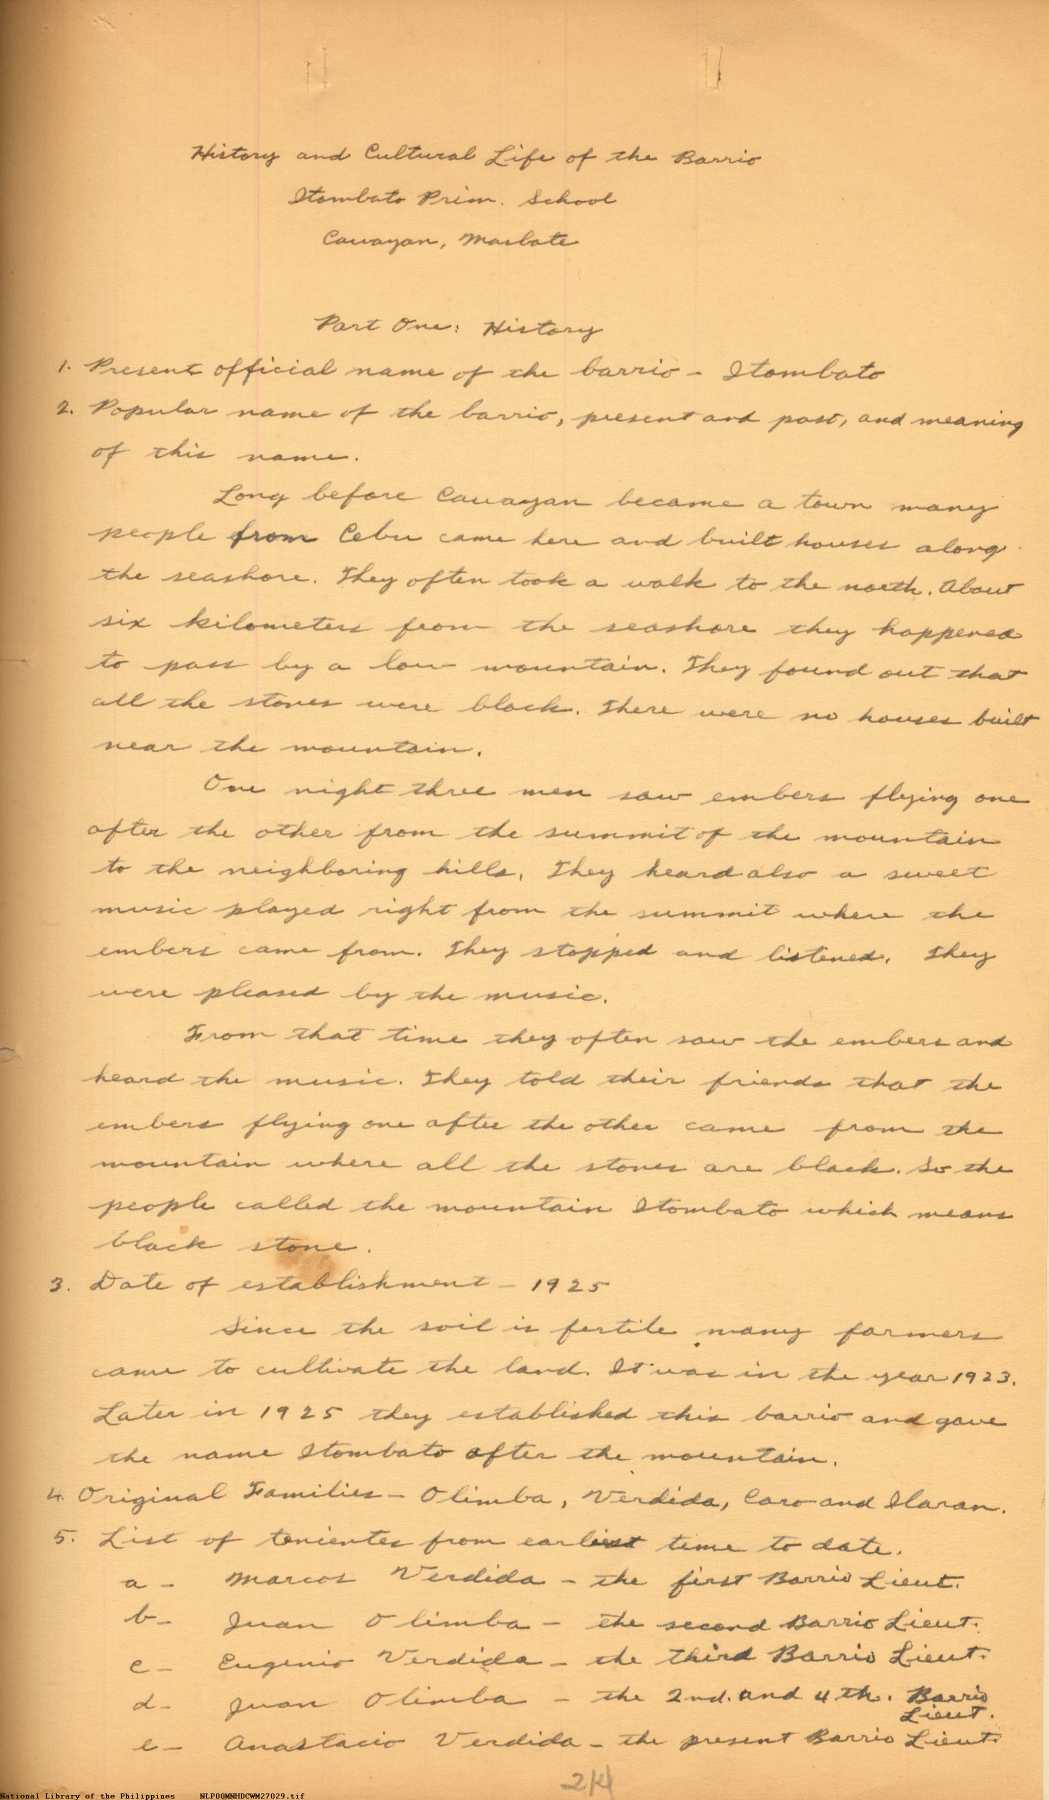 History and Cultural Life of the Barrio
Itombato Prim. School
Cauayan, Masbate
Part One: History
1. Present official name of the barrio - Itombato
2. Popular name of the barrio, present and past, and meaning
of this name.
Long before Cauayan became a town many
people from Cebu came here and built houses along
the seashore. They often took a walk to the north. About
six kilometers from the seashore they happened
to pass by a low mountain. They found out that
all the stones were black. There were no houses built
near the mountain.
One night three men saw embers flying one
after the other from the summit of the mountain
to the neighboring hills. They heard also a sweet
music played right from the summit where the
embers came from. They stopped and listened. They
were pleased by the music.
From that time they often saw the embers and
heard the music. They told their friends that the
embers flying one after the other came from the
mountain where all the stones are black. So the
people called the mountain Itombato which means
black stone.
3. Date of establishment - 1925
Since the soil is fertile many farmers
came to cultivate the land. It was in the year 1923.
Later in 1925 they established this barrio and gave
the name Itombato after the mountain.
4. Original Families - Olimba, Verdida, Caro and Ilaran.
5. List of tenientes from earliest time to date.
a - Marcos Verdida - the first Barrio Lieut.
b - Juan Olimba - the second Barrio Lieut.
c - Eugenio Verdida - the third Barrio Lieut.
d - Juan Olimba - the 2nd. and 4th. Barrio
Lieut.
e - Anastacio Verdida - the present Barrio Lieut.
National Library of the Philippines NLP00MNHDCWM27029.tif